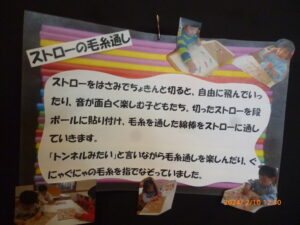 ストローの毛糸通し
ストローをはさみでちょきんと切ると、自由に飛んでいっ
たり、音が面白く楽しむ子どもたち。切ったストローを段
ボールに貼り付け、毛糸を通した綿棒をストローに通し
ていきます。
「トンネルみたい」と言いながら毛糸通しを楽しんだり、ぐ
にゃぐにゃの毛糸を指でなぞっていました。
2024/2/10